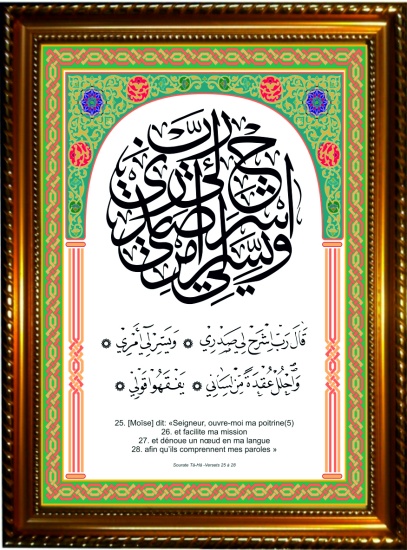 رب اشرح لي صدري ويسر لي أمري
قَالَ رَبِّ اشْرَحْ لِي صَدْرِي ۞ وَيَسِّرْ لِي أَمْرِي ۞
وَاحْلُلْ عُقْدَةً مِّن لِّسَانِي ۞ يَفْقَهُوا قَوْلِي ۞
25. [Moïse] dit: «Seigneur, ouvre-moi ma poitrine(5)
26. et facilite ma mission
27. et dénoue un nœud en ma langue
28. afin qu'ils comprennent mes paroles »
Sourate Tâ-Hâ -Versets 25 à 28